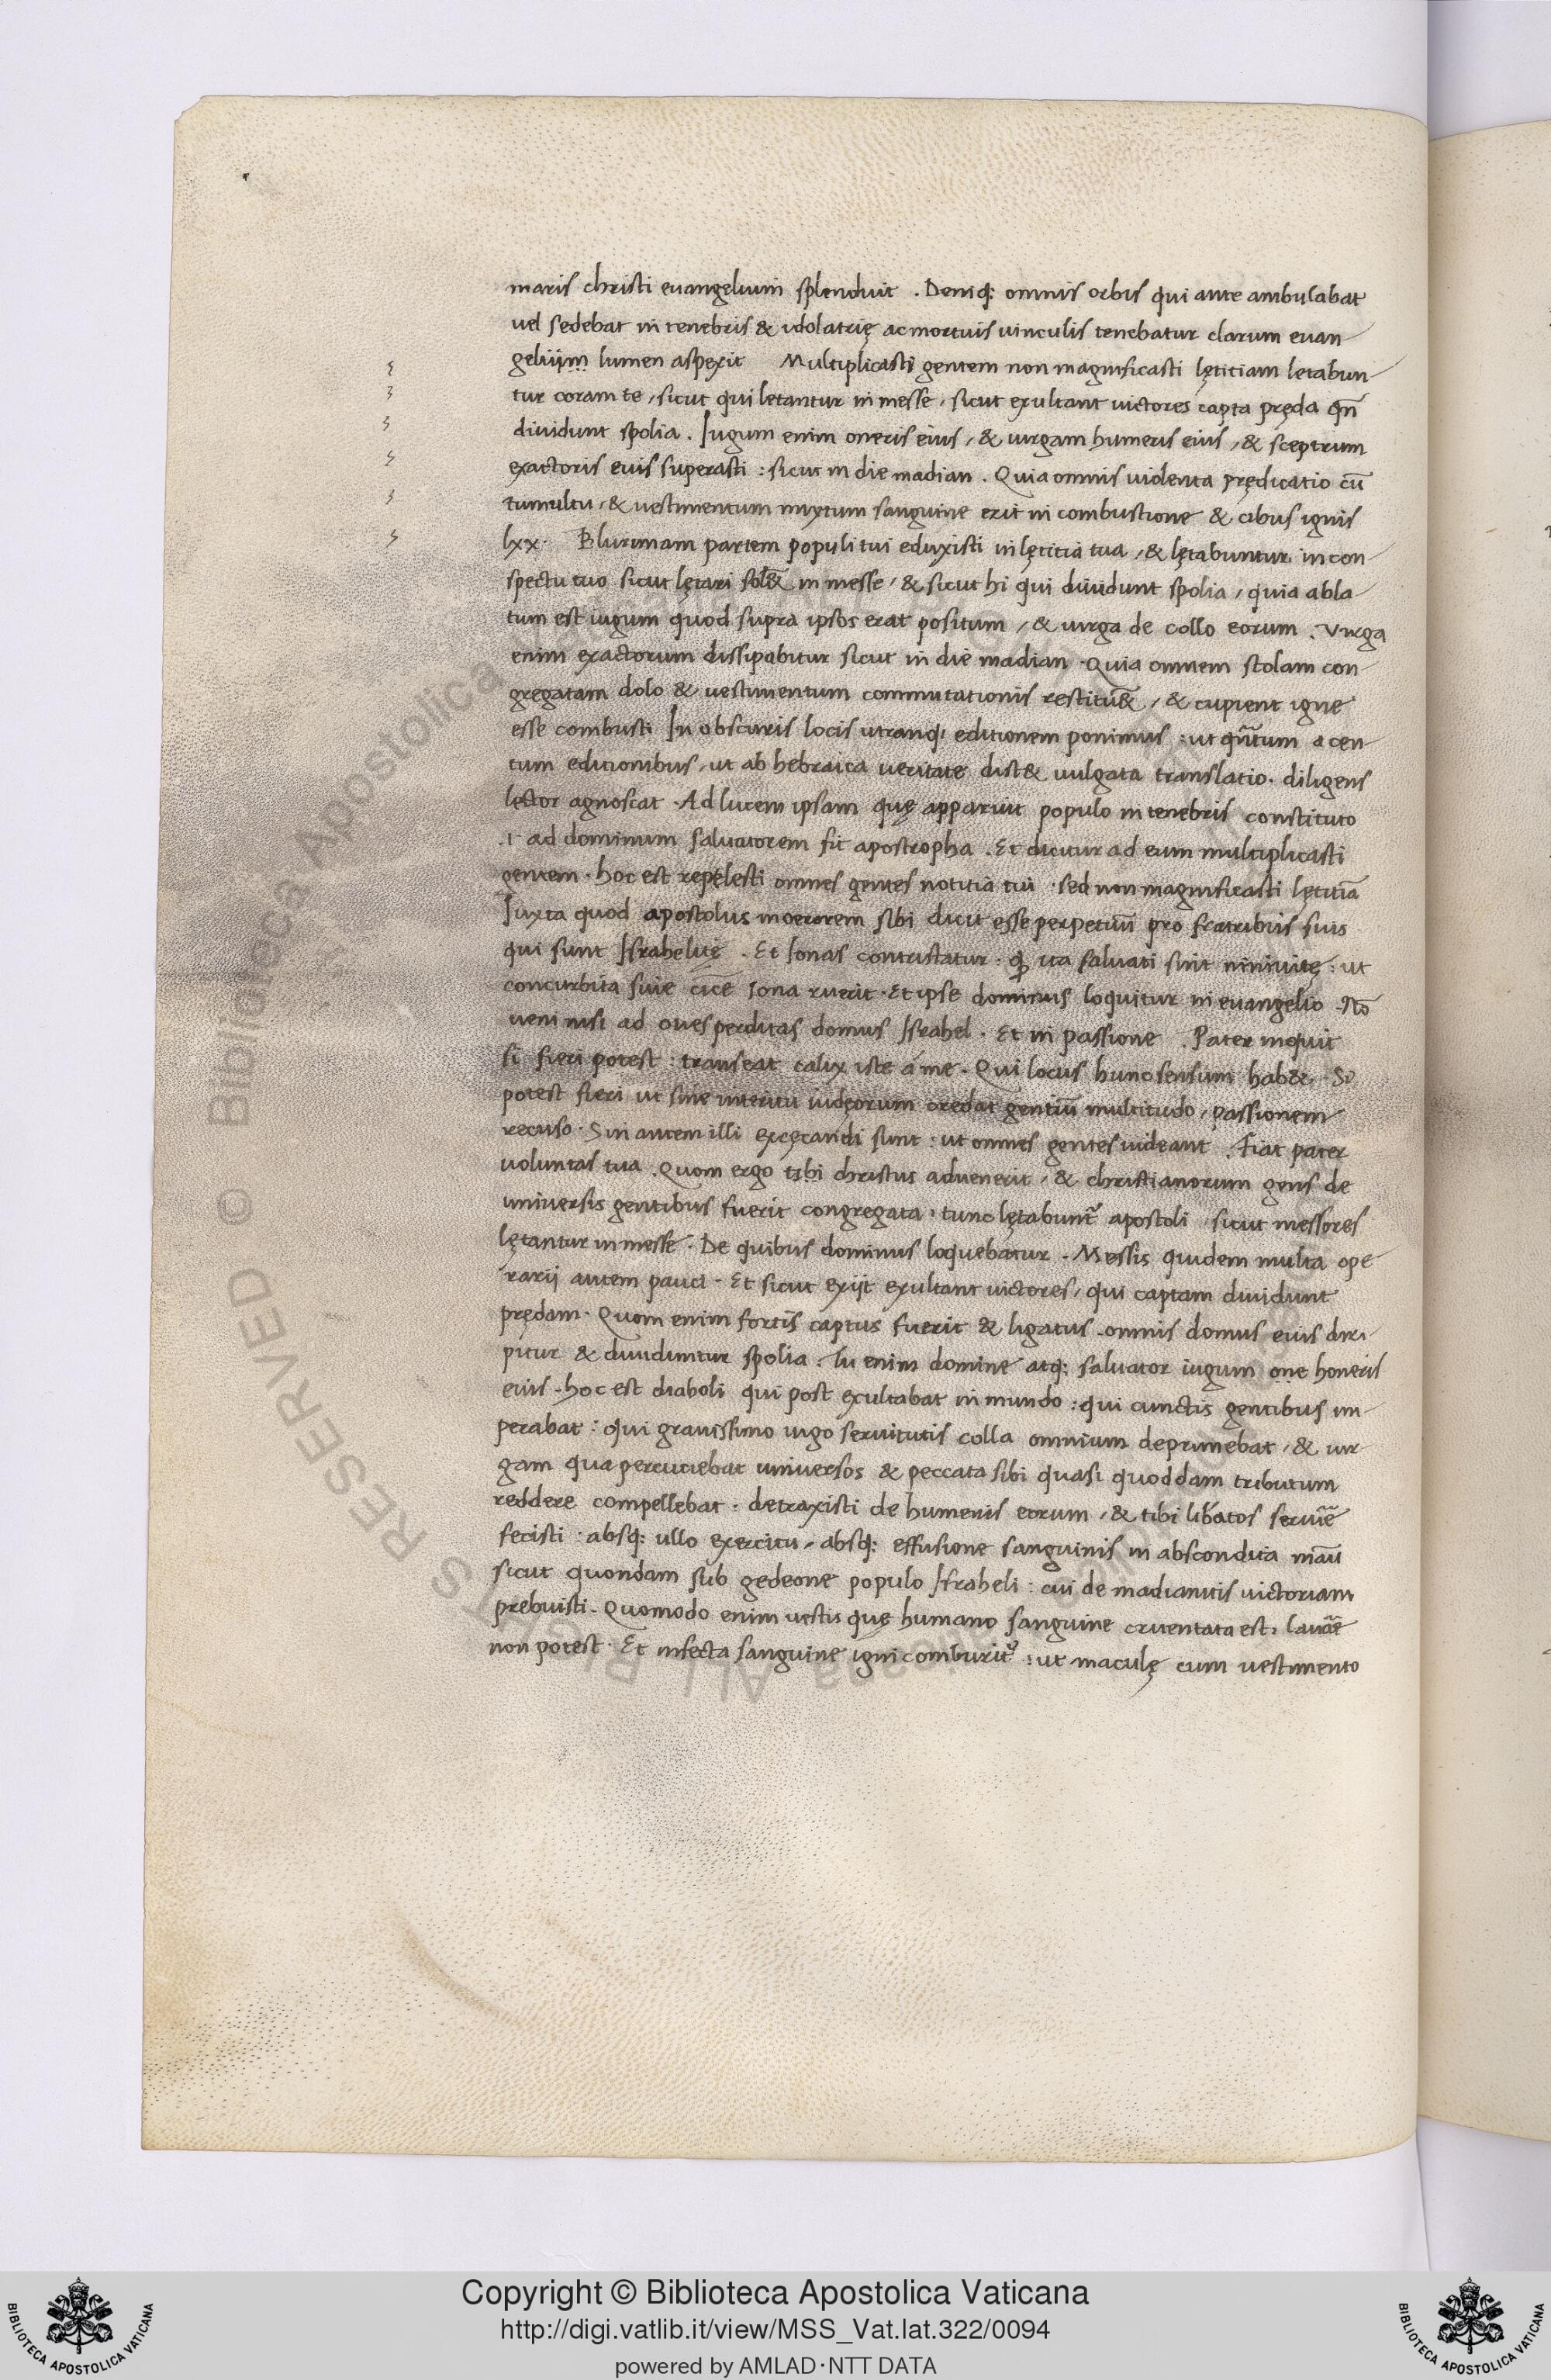 maris christi euangelium splenduit . Deniq: omnis orbis qui ante ambulabat
uel sedebat in tenebris & idolatrię ac mortuis uinculis tenebatur clarum euan
geliijm lumen aspexit Multiplicasti gentem non magnificasti lętitiam letabun-
tur coram te, sicut qui letantur in messe, sicut exultant uictores capta pręda qn̄
diuidunt spolia . Iugum enim oneris eius, & uirgam humeris eius, & sceptrum
exactoris euis superasti : sicut in die madian . Quia omnis uiolenta prędicatio cū
tumultu, & uestimentum mixtum sanguine erit in combustione & cibus ignis
lxx. Plurimam partem populi tui eduxisti in lętitia tua, & lętabuntur in con-
spectu tuo sicut lętari sol& in messe, & sicut hi qui diuidunt spolia, quia abla-
tum est iugum quod supra ipsos erat positum, & uirga de collo eorum . Virga
enim exactorum dissipabitur sicut in die madian . Quia omnem stolam con-
gregatam dolo & uestimentum commutationis restitū&, & cupient igne
esse combusti In obscuris locis utranq: editionem ponimus : ut qn̄tum a cen-
tum editionibus, ut ab hebraica ueritate dist& uulgata translatio . diligens
lector agnoscat . Ad lucem ipsam quę apparuit populo in tenebris constituto
. r ad dominum saluatorem fit apostropha . Et dicitur ad eum multiplicasti
gentem . hoc est repelesti omnes gentes notitia tui . sed non magnificasti lętitiā
Iuxta quod apostolus moerorem sibi dicit esse perpetuū pro fratribus suis
qui sunt Israhelitę . Et Ionas contristatur . q ita saluati sint niniuitę : ut
concurbita siue cice Iona ruerit . Et ipse dominus loquitur in euangelio . Nō
ueni nisi ad oues perditas domus Israhel . Et in passione . Pater inquit
si fieri potest : transeat calix iste a me . Qui locus hunc sensum hab& . Si
potest fieri ut sine interitu iudęorum credat gentiū multitudo, passionem
recuso . Sin autem illi excęcandi sunt : ut omnes gentes uideant . Fiat pater
uoluntas tua . Quom ergo tibi christus aduenerit, & christianorum gens de
uniuersis gentibus fuerit congregata . tunc lętabunt̄ apostoli sicut messores
lętantur in messe . De quibus dominus loquebatur . Messis quidem multa ope
rarij autem pauci . Et sicut exijt exultant uictores, qui captam diuidunt
prędam . Quom enim fortis captus fuerit & ligatus . omnis domus eius diri-
pitur & diuiduntur spolia . Tu enim domine atq: saluator iugum one honeris
eius . hoc est diaboli qui post exultabat in mundo : qui cunctis gentibus im
perabat : qui grauissimo iugo seruitutis colla omnium deprimebat, & uir-
gam qua percutiebat uniuersos & peccata sibi quasi quoddam tributum
reddere compellebat . detraxisti de humeris eorum, & tibi lib̄atos seruir̄e
fecisti . absq: ullo exercitu, absq: effusione sanguinis in abscondita manū
sicut quondam sub gedeone populo Israheli : cui de madianitis uictoriam
prebuisti . Quomodo enim uestis quę humano sanguine cruentata est . lauar̄e
non potest . Et infecta sanguine igni comburit̄ : ut maculę cum uestimento
Copyright © Biblioteca Apostolica Vaticana
http://digi.vatlib.it/view/MSS_Vat.lat.322/0094
powered by AMLAD·NTT DATA
BIBLIOTECA APOSTOLICA VATICANA
BIBLIOTECA APOSTOLICA VATICANA